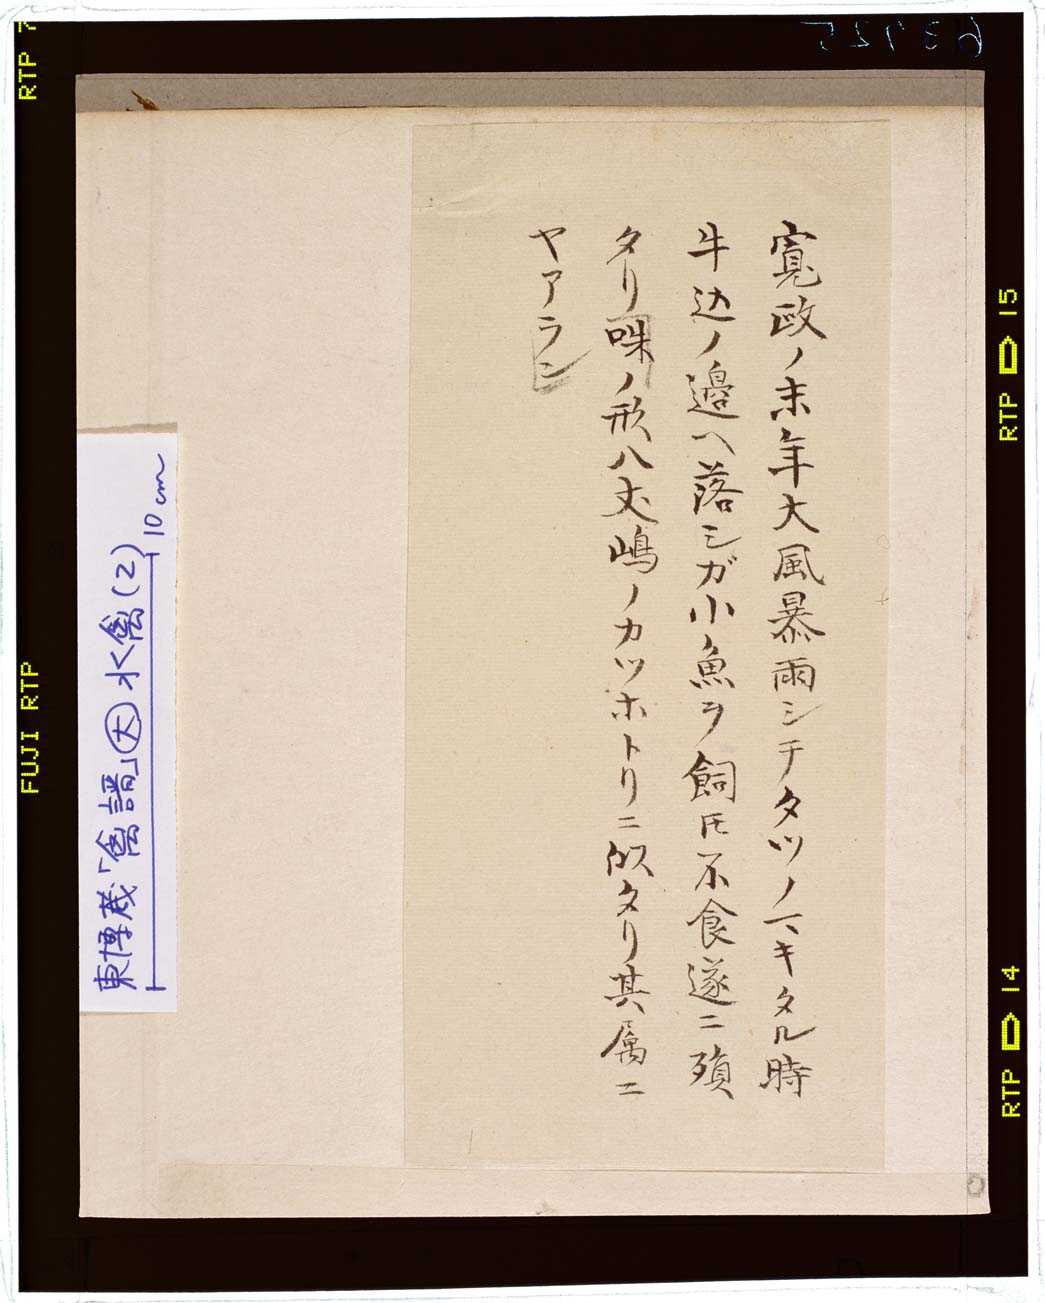 寛政ノ末年大風暴雨シテタツノマキタル時
牛込ノ邉ヘ落シガ小魚ヲ飼𪜈不食遂ニ殞
タリ咮ノ形八丈嶋ノカツホトリニ似タリ其属ニ
ヤアラン
東博蔵「禽譜」大 水禽(2)
10cm
63725
RTP 7
FUJI RTP
RTP 15
RTP 14